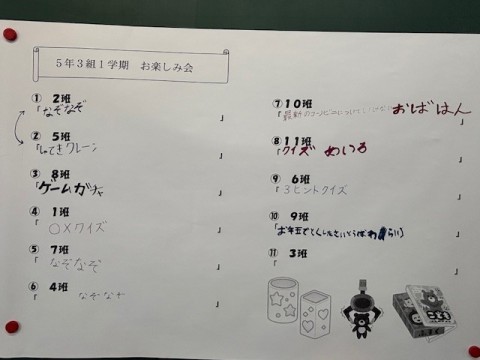 5年3組1学期 お楽しみ会
① 2班
「なぞなぞ 」
② 5班
「しゃてきクレーン 」
③ 8班
「ゲームガチャ 」
④ 1班
「○×クイズ 」
⑤ 7班
「なぞなぞ 」
⑥ 4班
「なぞなぞ 」
⑦ 10班
「最新の おばはん 」
⑧ 11班
「クイズ めいろ 」
⑨ 6班
「3ヒントクイズ 」
⑩ 9班
「お年玉で 」
⑪ 3班
「 」